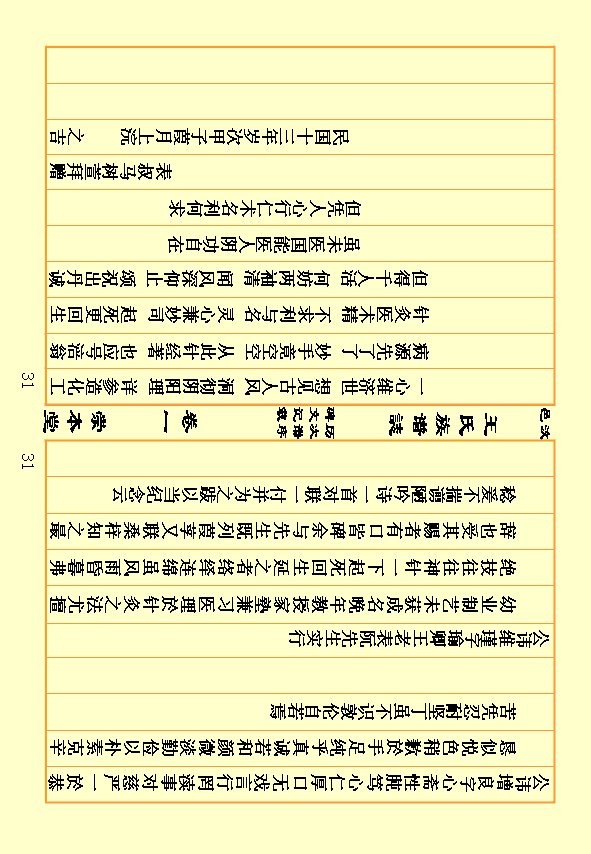 公讳增良字心斋性肫笃心仁厚口无戏言行罔凌事对慈严一於恭
恳似悦色翱数於手足纯乎真诚和若颜微淡勤俭以朴素克辛
苦先忍耐坚丁虽不识敦伦自若焉
公讳维瑾字瑜卿王老表阮先生实行
幼业制艺未获成名晚年教授家塾兼习医理於针灸之法尤擅
绝技往往神针一下起死回生延之者络绎连绵虽风雨昏暮弗
辞也受其赐者有口皆碑余与先生既列葭莩又联桑梓知之最
稔爰不揣谫陋吟诗一首对联一付并为之跋以当纪念云
31
汶邑
王氏族谱誌
历次谱序
碑文记载
卷一
崇本堂
31
一心维济世 想见古人风 洞彻阴阳理 洋参造化工
病源先了了 妙手竟空空 从此针经著 也应号活翁
针灸医术精 不求利与名 灵心兼妙司 起死更回生
但得千人活 何妨两袖清 闻风深仰止 颂祝出丹诚
虽未医国能医人阴功自在
但凭人心行仁术名利何求
表叔马树萱拜赠
民国十三年岁次甲子葭月上浣 之吉